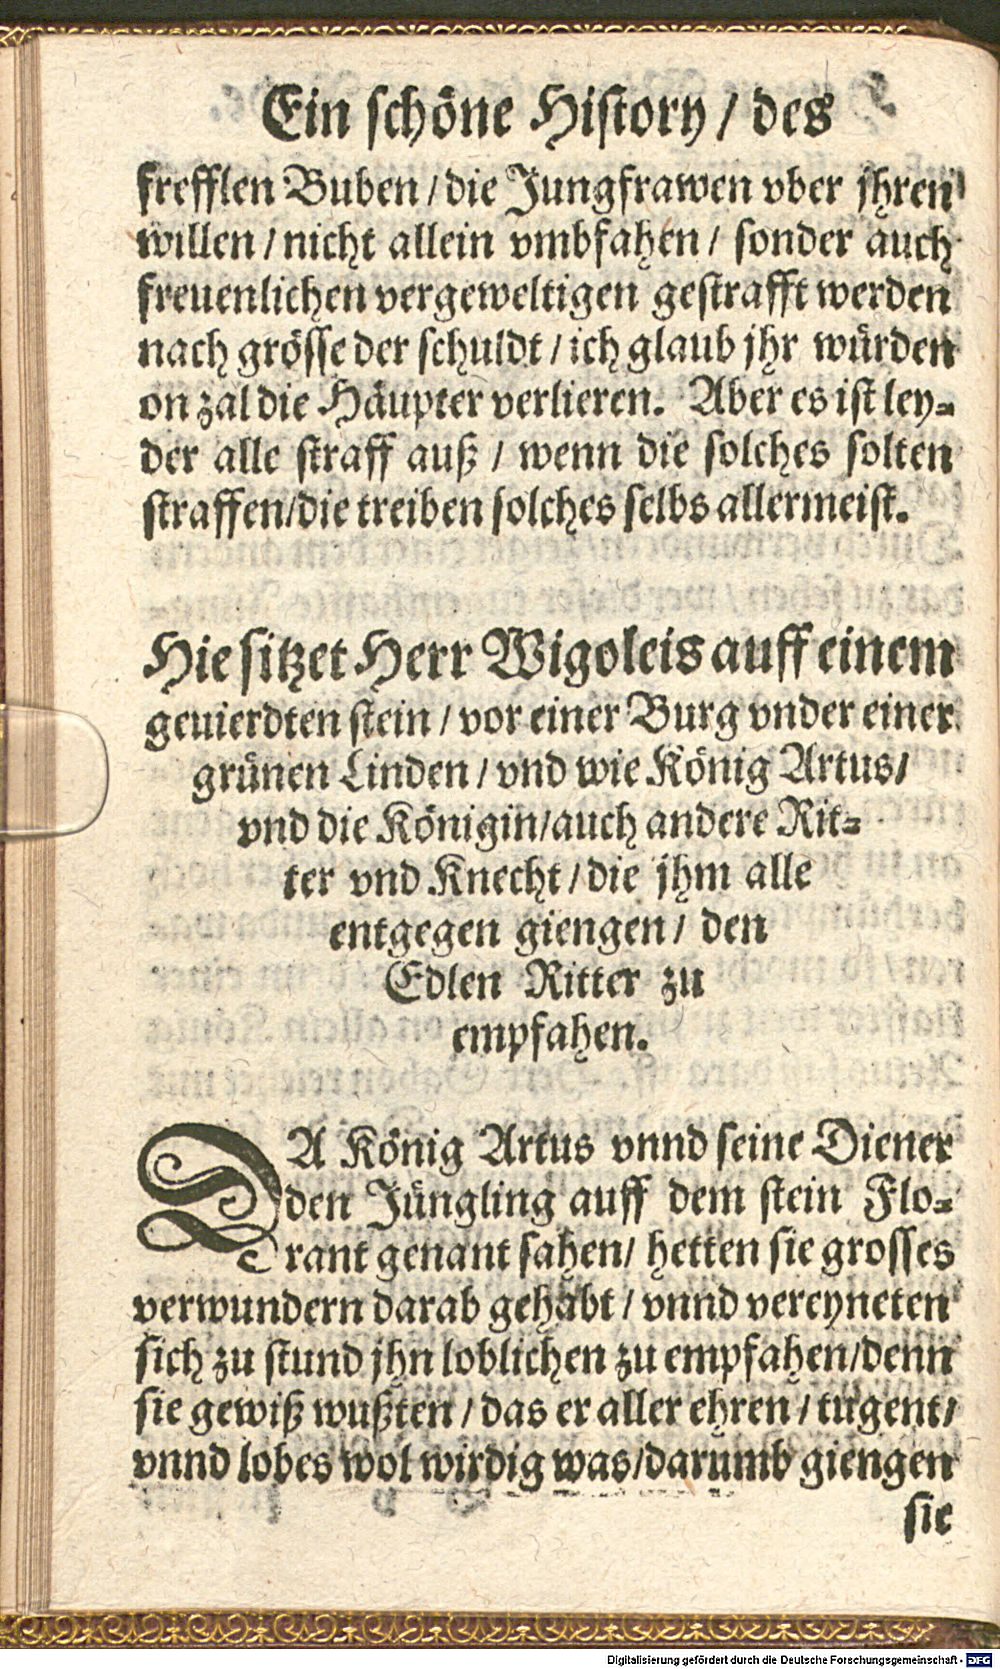 Ein schöne History / des
frefflen Buben / die Jungfrawen vber jhren
willen / nicht allein vmbfahen / sonder auch
freuenlichen vergeweltigen gestrafft werden
nach grösse der schuldt / ich glaub jhr würden
on zal die Häupter verlieren. Aber es ist ley-
der alle straff auß / wenn die solches solten
straffen / die treiben solches selbs allermeist.
Hie sitzet Herr Wigoleis auff einem
geuierdten stein / vor einer Burg vnder einer
grünen Linden / vnd wie König Artus /
vnd die Königin / auch andere Rit-
ter vnd Knecht / die jhm alle
entgegen giengen / den
Edlen Ritter zu
empfahen.
DA König Artus vnnd seine Diener
den Jüngling auff dem stein Flo-
rant genant sahen / hetten sie grosses
verwundern darab gehabt / vnnd vereyneten
sich zu stund jhn loblichen zu empfahen / denn
sie gewiß wußten / das er aller ehren / tugent /
vnnd lobes wol wirdig was / darumb giengen
sie
Digitalisierung gefördert durch die Deutsche Forschungsgemeinschaft - DFG